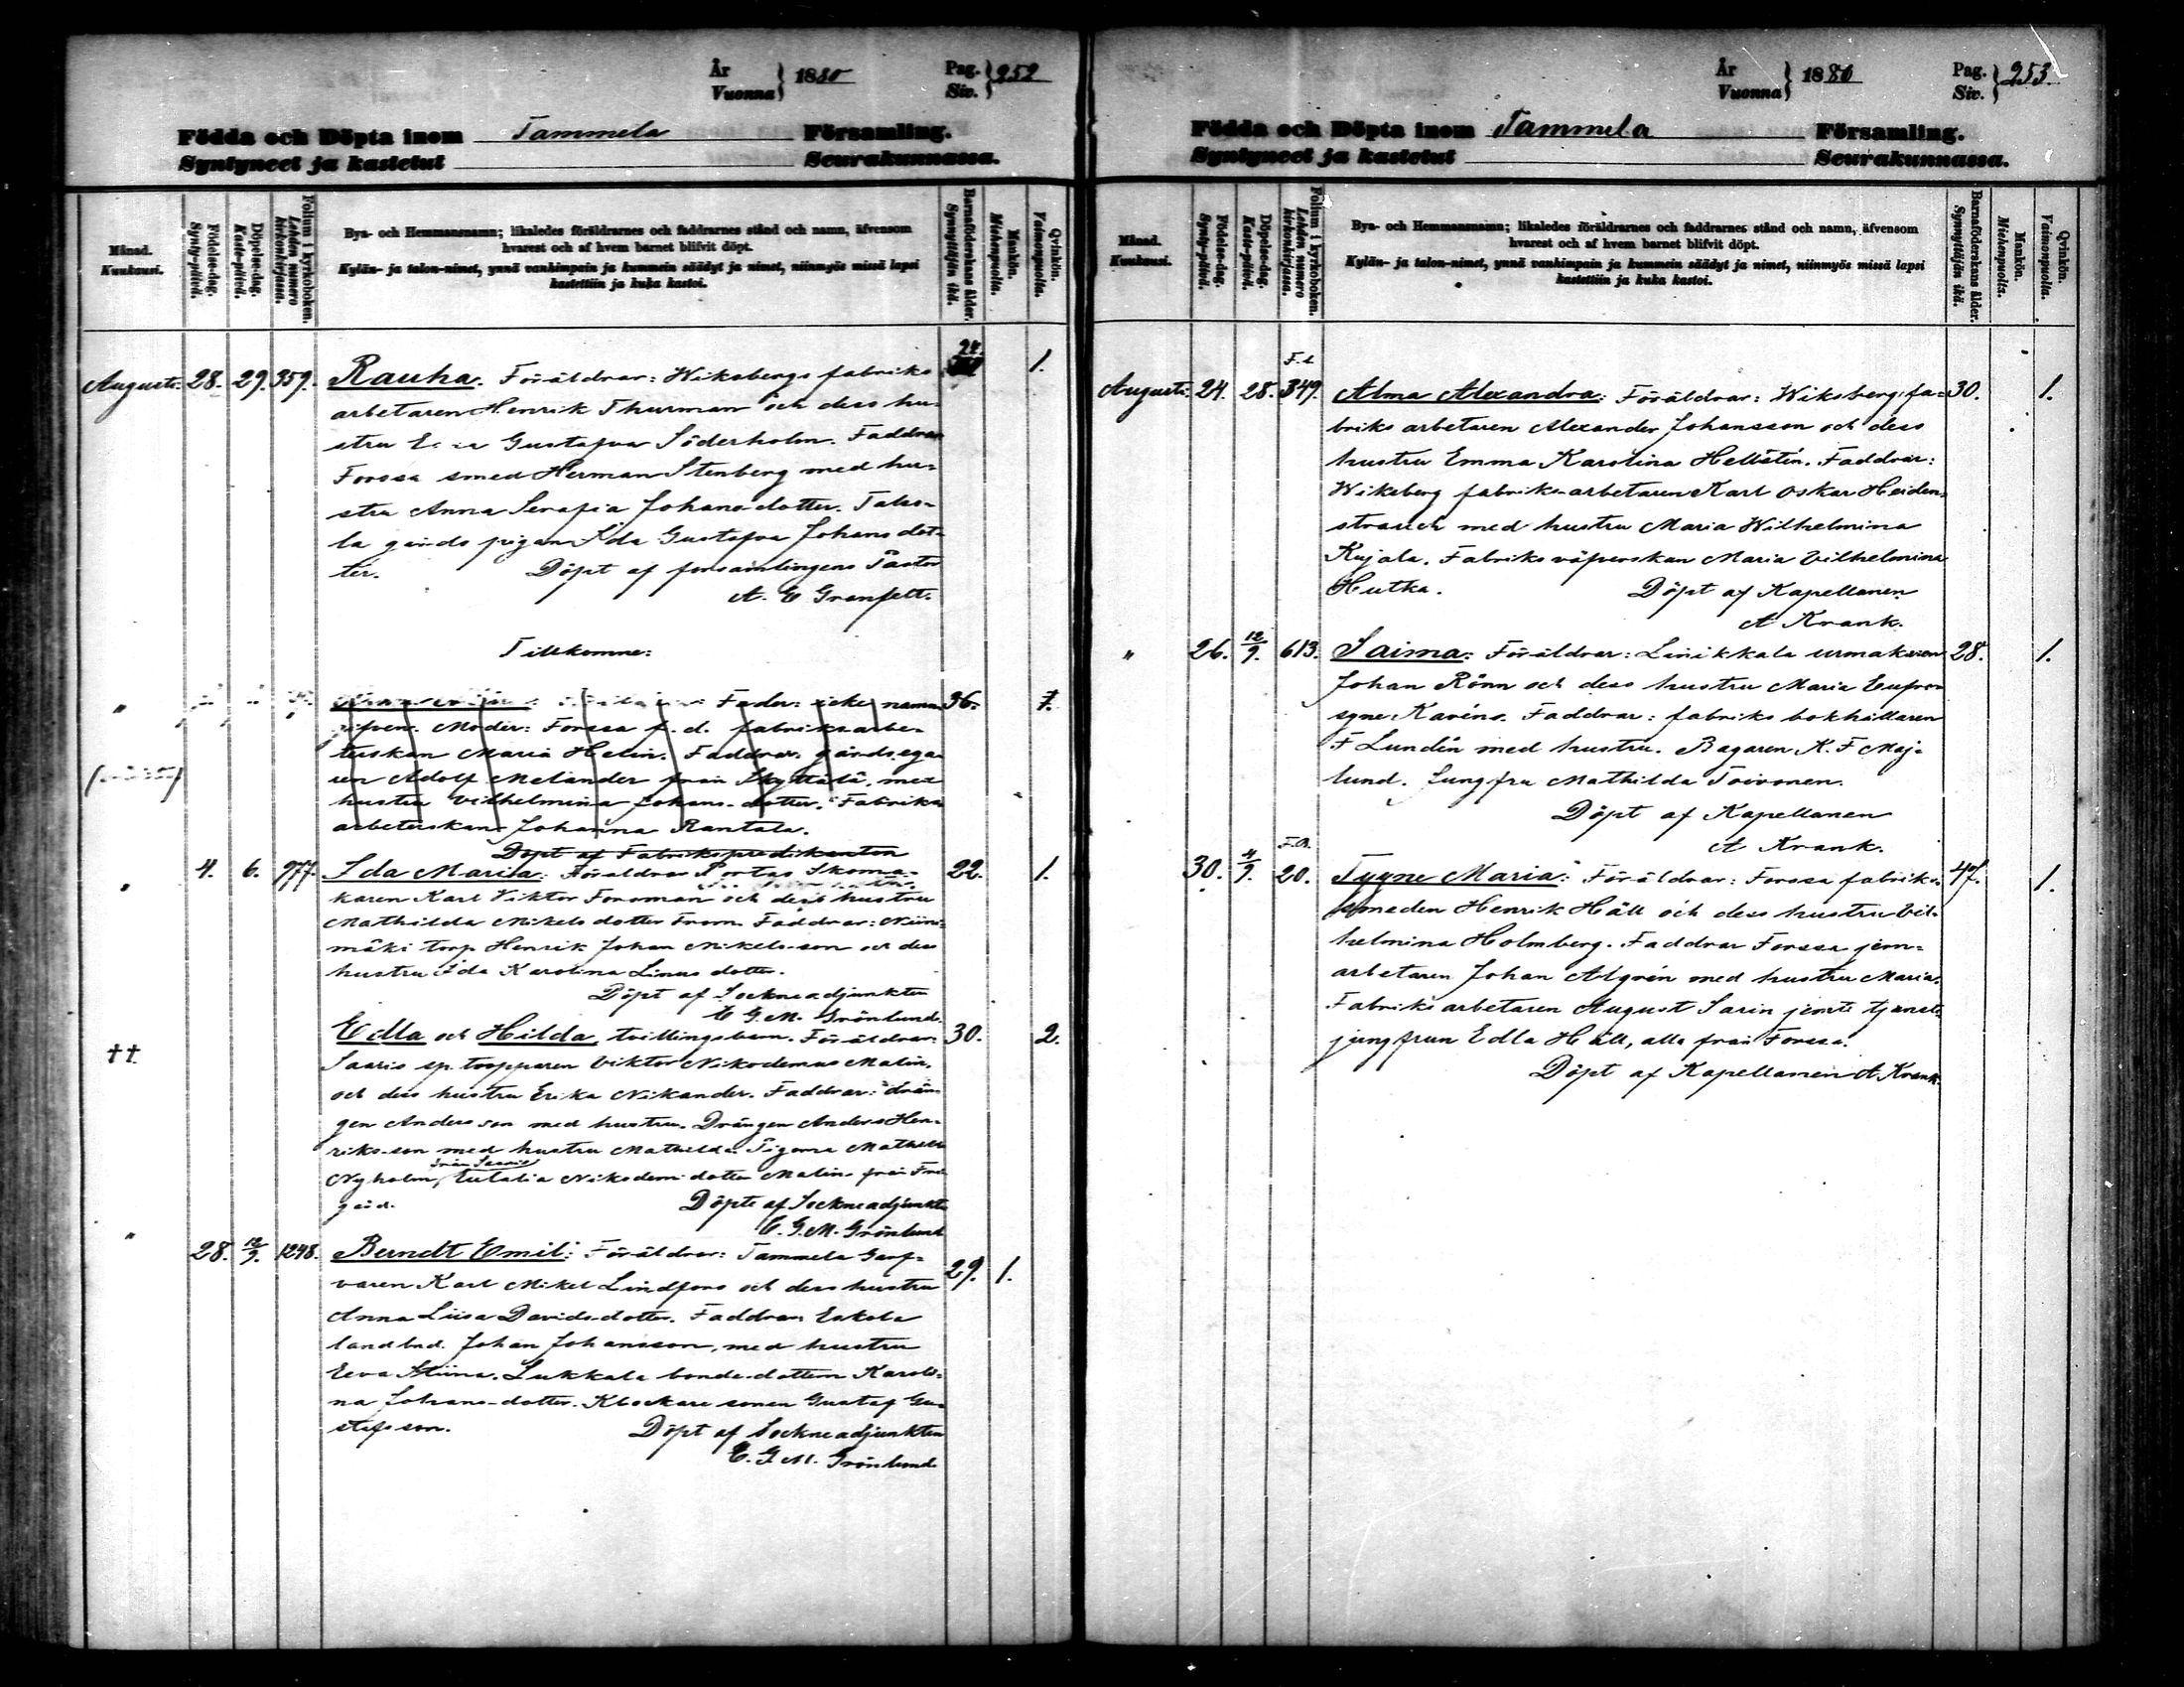 År
Vuonna } 1880
Pag.
Siv. } 252
Födda och Döpta inom Tammela Församling.
Syntyneet ja kastetut Seurakunnassa.
Månad.
Kuukausi.
Födelse-dag.
Synty-päivä.
Döpelse-dag.
Kaste-päivä.
Folium i kyrkoboken.
Lehden numero kirkonkirjassa.
Bya- och Hemmansnamn; likaledes föräldrarnes och faddrarnes stånd och namn, äfvensom
hvarest och af hvem barnet blifvit döpt.
Kylän- ja talon-nimet, ynnä vanhimpain ja kummein säädyt ja nimet, niinmyös missä lapsi
kastettiin ja kuka kastoi.
Barnaföderskans ålder.
Synnyttäjän ikä.
Mankön.
Miehenpuolia.
Qvinkön.
Vaimonpuolia.
24.
Augusti. 28. 29. 359. Rauha. Föräldrar: Wiksbergs fabriks 1.
arbetaren Henrik Thurman och dess hu-
stru Gustafva Söderholm. Faddrar
Forssa smed Herman Stenberg med hu-
stru Anna Serafia Johans dotter. Talso-
la gårds pigan Ida Gustafva Johans dot-
ter. Döpt af församlingens Pastor
A. E Granfelt.
Tillkomne:
" Fader: icke namn 36. 1.
gifven. Moder: Forssa f. d. fabriksarbe-
terskan Maria Helin. Faddrar. gårdsega-
ren Adolf Melander från Skyttälä, med
hustru Vilhelmina Johans-dotter. Fabriks
arbeterskan Johanna Rantala.
Döpt af Fabrikspredikanten
" 4. 6. 977. Ida Maria: Föräldrar Portas Skoma- 22. 1.
karen Karl Viktor Forsman och dess hustru
Mathilda Mikels dotter From. Faddrar: Niini-
mäki torp. Henrik Johan Mikels-son och dess
hustru Ida Karolina Linus dotter.
Döpt af Sockneadjunkten
E G. M. Grönlund.
Edla och Hilda, tvillingsbarn. Föräldrar: 30. 2.
†† Saaris sp. torpparen Viktor Nikodemus Malin,
och dess hustru Erika Nikander. Faddrar: drän-
gen Andersson med hustru. Drängen Anders Hen-
riks-son med hustru Mathilda. Pigorna Mathilda
från Saaris
Nyholm, Eulalia Nikodemi dotter Malin från
gård. Döpte af Sockneadjunkten
E. G. M. Grönlund
" 28. 12/9. 1248. Berndt Emil: Föräldrar: Tammela Garf-
varen Karl Mikel Lindfors och dess hustru 29. 1.
Anna Liisa Davids-dotter. Faddrar Eskola
landbud. Johan Johansson, med hustru
Eeva Stiina. Lukkala bonde-dottern Karoli-
na Johans-dotter. Klockare sonen Gustaf Gu-
stafsson. Döpt af Sockneadjunkten
E. G. M. Grönlund
År
Vuonna } 1880
Pag.
Siv. } 253.
Födda och Döpta inom Tammela Församling.
Syntyneet ja kastetut Seurakunnassa.
Månad.
Kuukausi.
Födelse-dag.
Synty-päivä.
Döpelse-dag.
Kaste-päivä.
Folium i kyrkoboken.
Lehden numero kirkonkirjassa.
Bya- och Hemmansnamn; likaledes föräldrarnes och faddrarnes stånd och namn, äfvensom
hvarest och af hvem barnet blifvit döpt.
Kylän- ja talon-nimet, ynnä vanhimpain ja kummein säädyt ja nimet, niinmyös missä lapsi
kastettiin ja kuka kastoi.
Barnaföderskans ålder.
Synnyttäjän ikä.
Mankön.
Miehenpuolia.
Qvinkön.
Vaimonpuolia.
Augusti. 24. 28. 349. Alma Alexandra: Föräldrar: Wiksbergs fa- 30. 1.
briks arbetaren Alexander Johansson och dess
hustru Emma Karolina Hellstén. Faddrar:
Wiksberg fabriks-arbetaren Karl Oskar Heiden-
strauch med hustru Maria Wilhelmina
Kujala. Fabriks väfverskan Maria Vilhelmina
Hutka. Döpt af Kapellanen
A Krank.
" 26. 12/9. 613. Saima: Föräldrar: Linikkala urmakaren 28. 1.
Johan Rönn och dess hustru Maria Eufro-
syne Karéns. Faddrar: fabriks bokhållaren
F Lundén med hustru. Bagaren K. F Maj-
lund. Jungfru Mathilda Toivonen.
Döpt af Kapellanen
A Krank.
F.A.
30. 4/9. 20. Tyyne Maria: Föräldrar: Forssa fabriks- 47. 1.
smeden Henrik Häll och dess hustru Vil-
helmina Holmberg. Faddrar Forssa jern-
arbetaren Johan Algrén med hustru Maria.
Fabriks arbetaren August Sarin jemte tjenste-
jungfrun Edla Häll, alla från Forssa.
Döpt af Kapellanen A. Krank.